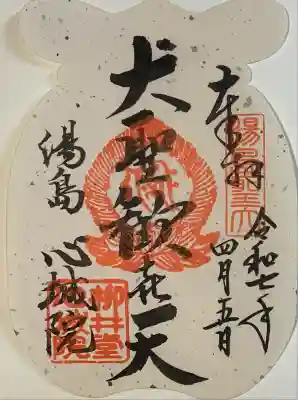 奉拝
令和七年
四月五日
湯島聖天
大聖歓喜天
湯島
心城院
柳井堂